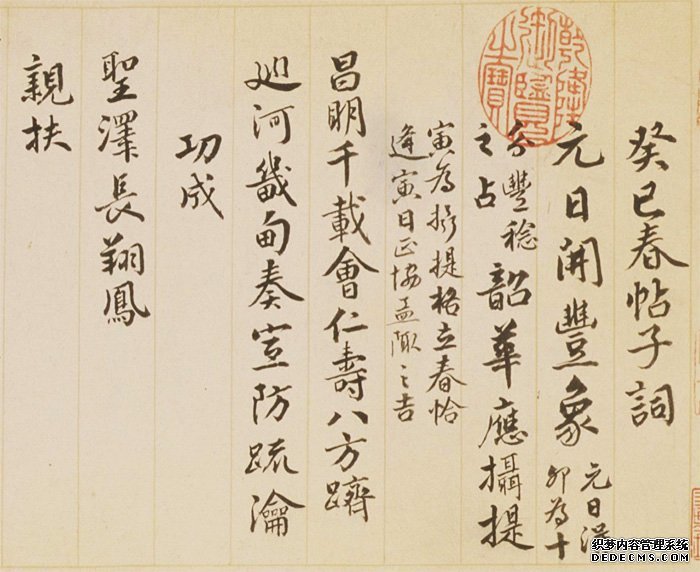 癸巳春帖子詞
元日開豐象
元日得
卯為十
分豐稔
之占
韶華應攝提
寅為攝提格立春恰
逢寅日正協孟陬之吉
昌明千載會仁壽八方躋
廵河畿甸奏宣防疏瀹
功成
聖澤長翔鳳
親扶
乾隆御覽之寶
织梦内容管理系统
DEDECMS.COM